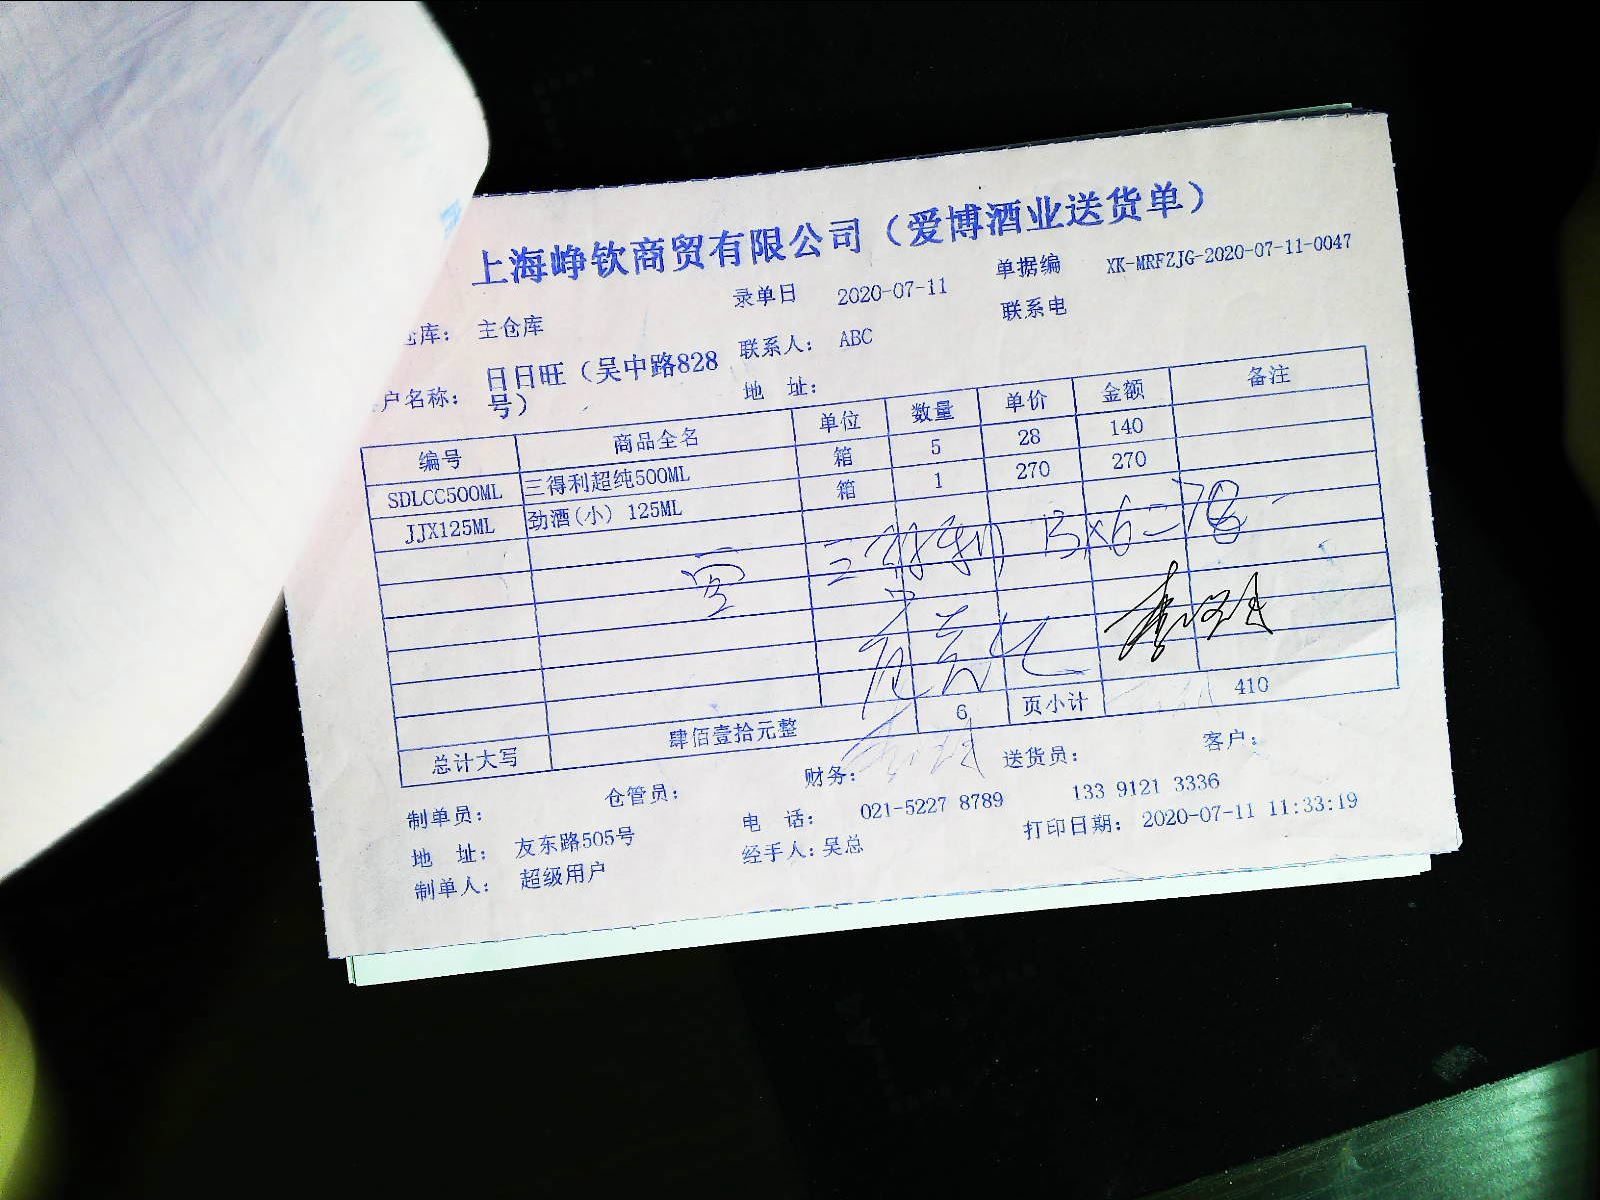 上海峥钦商贸有限公司（爱博酒业送货单）
仓库： 主仓库 录单日 2020-07-11 单据编 XK-MRFZJG-2020-07-11-0047
户名称： 日日旺（吴中路828号） 联系人： ABC 联系电
地 址：
编号 商品全名 单位 数量 单价 金额 备注
SDLCC500ML 三得利超纯500ML 箱 5 28 140
JJX125ML 劲酒(小) 125ML 箱 1 270 270
三得利 13×6=78
总计大写 肆佰壹拾元整 6 页小计 410
制单员： 仓管员： 财务： 送货员： 客户：
地 址： 友东路505号 电 话： 021-5227 8789 133 9121 3336
制单人： 超级用户 经手人: 吴总 打印日期： 2020-07-11 11:33:19